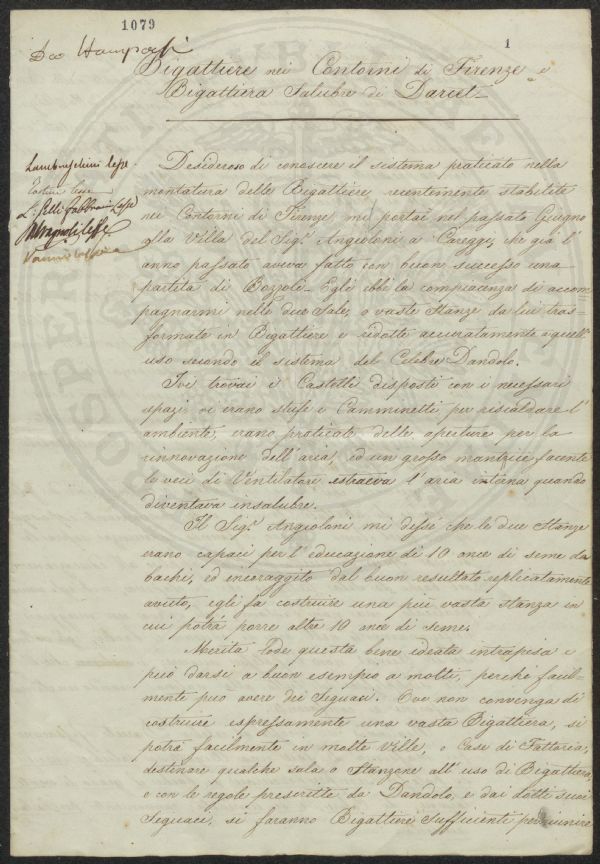 1079
1
Bigattiere nei Contorni di Firenze e
Bigattiera Salubre di Darcet
Lambruschini lesse.
Desideroso di conoscere il sistema praticato nella
montatura delle Bigattiere, recentemente stabilite
nei Contorni di Firenze mi portai nel passato Giugno
alla Villa del Sig.r Angioloni a Caregge, che già l'
anno passato aveva fatto con buon successo una
partita di Bozzoli. Egli ebbe la compiacenza di accom
pagnarmi nelle due Sale, o vaste Stanze da lui tras-
formate in Bigattiere e ridotte accuratamente a quell'
uso secondo il sistema del Celebre Dandolo.
Ivi trovai i Castelli disposti con i necessari
spazi vi erano stufe e Camminetti per riscaldare l'
ambiente, erano praticate delle aperture per la
rinnovazione dell'aria, ed un grosso mantice facente
le veci di Ventilatore estraeva l'aria interna quando
diventava insalubre.
Il Sig.r Angioloni mi disse che le due Stanze
erano capaci per l'educazione di 10 once di seme da
bachi, ed incoraggito dal buon resultato replicatamente
avuto, egli fa costruire una più vasta stanza in
cui potrà porre altre 10 once di seme.
Merita lode questa bene ideata intrapresa e
può darsi a buon esempio a molti, perché facil-
mente può avere dei Seguaci. Ove non convenga di
costruire espressamente una vasta Bigattiera, si
potrà facilmente in molte Ville, o Case di Fattoria,
destinare qualche sala o Stanzone all'uso di Bigattiera,
e con le regole prescritte da Dandolo, e dai dotti suoi
Seguaci, si faranno Bigattiere Sufficienti per riunire